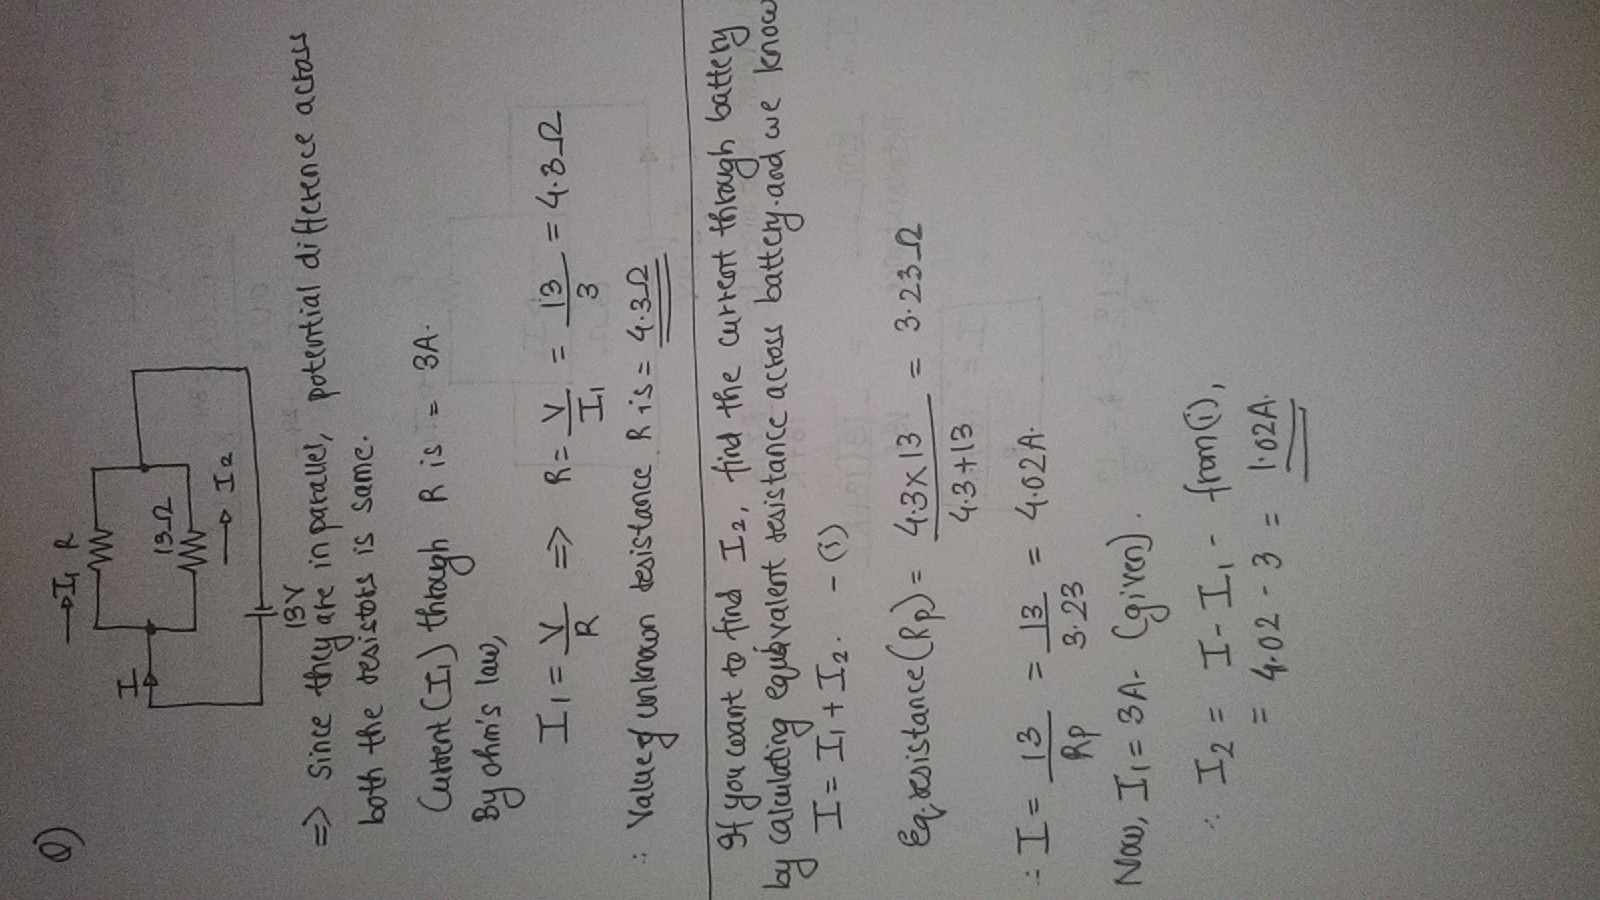 Q)
→ I1 R
13Ω
I
→ I2
13V
⇒ Since they are in parallel, potential difference across
both the resistors is same.
Current (I1) through R is = 3A.
By ohm's law,
I1 = V/R ⇒ R = V/I1 = 13/3 = 4.3Ω
∴ Value of unknown resistance R is = 4.3Ω
If you want to find I2, find the current through battery
by calculating equivalent resistance across battery. and we know
I = I1 + I2. - (i)
Eq. resistance (Rp) = 4.3×13/4.3+13 = 3.23Ω
∴ I = 13/Rp = 13/3.23 = 4.02A.
Now, I1 = 3A. (given).
∴ I2 = I - I1 - from (i),
= 4.02 - 3 = 1.02A.